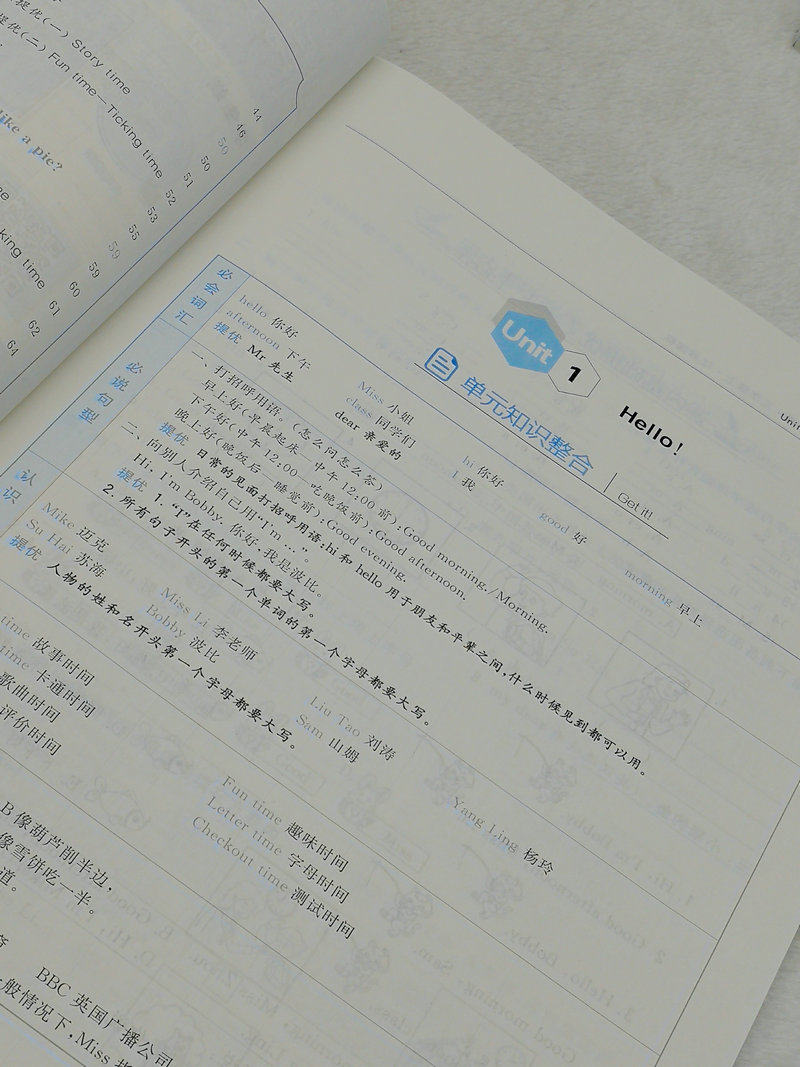 提优(一) Story time 44
提优(二) Fun time—Ticking time 46
50
like a pie?
50
51
52
53
55
59
king time 59
60
61
62
64
Unit
Unit 1 Hello!
单元知识整合 Get it!
必会词汇
hello 你好 Miss 小姐 hi 你好 good 好 morning 早上
afternoon 下午 class 同学们 I 我
提优 Mr 先生 dear 亲爱的
必说句型
一、打招呼用语。(怎么问怎么答)
早上好(早晨起床 中午12:00前):Good morning. /Morning.
下午好(中午12:00 吃晚饭前):Good afternoon.
晚上好(晚饭后 睡觉前):Good evening.
提优 日常的见面打招呼用语:hi 和 hello 用于朋友和平辈之间,什么时候见到都可以用。
二、向别人介绍自己用“I'm …”。
Hi, I'm Bobby. 你好,我是波比。
提优 1. “I”在任何时候都要大写。
2. 所有句子开头的第一个单词的第一个字母都要大写。
认识
Mike 迈克 Miss Li 李老师 Liu Tao 刘涛 Yang Ling 杨玲
Su Hai 苏海 Bobby 波比 Sam 山姆
提优 人物的姓和名开头第一个字母都要大写。
time 故事时间 Fun time 趣味时间
time 卡通时间 Letter time 字母时间
歌曲时间 Checkout time 测试时间
评价时间
B 像葫芦削半边,
像雪饼吃一半。
道。
BBC 英国广播公司
般情况下,Miss